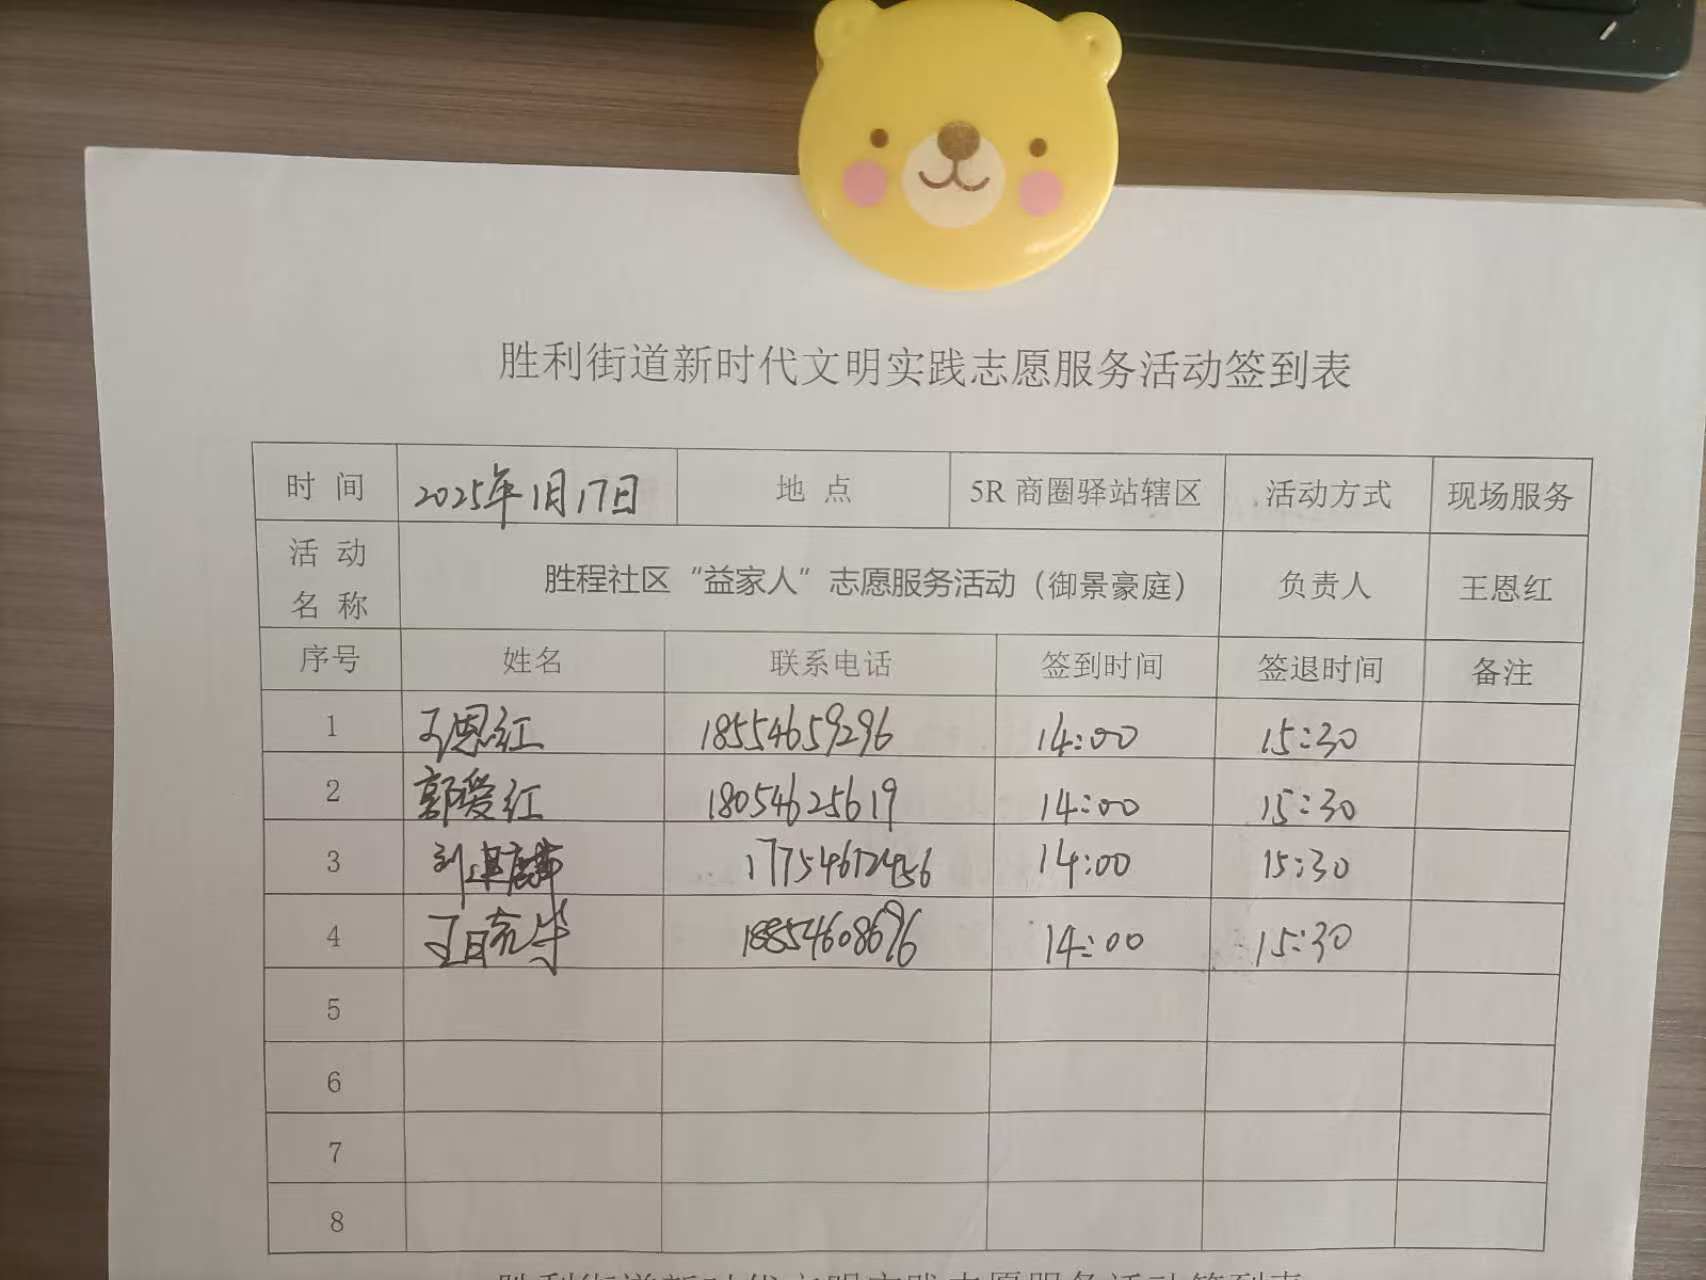 胜利街道新时代文明实践志愿服务活动签到表
时 间 2025年1月17日 地 点 5R 商圈驿站辖区 活动方式 现场服务
活 动 名 称 胜程社区“益家人”志愿服务活动（御景豪庭） 负责人 王恩红
序号 姓名 联系电话 签到时间 签退时间 备注
1 王恩红 18554659296 14:00 15:30
2 郭爱红 18054625619 14:00 15:30
3 14:00 15:30
4 14:00 15:30
5
6
7
8
胜利街道新时代文明实践志愿服务活动签到表